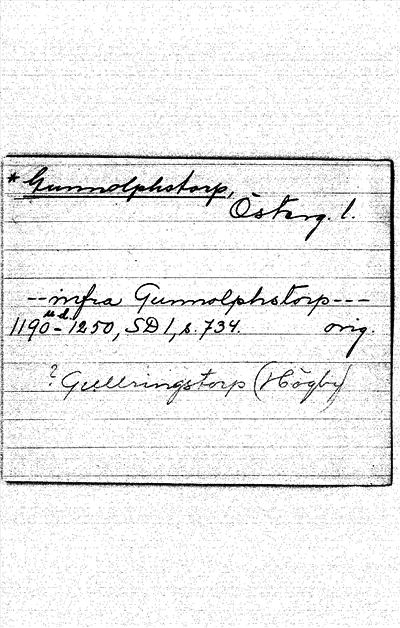 * Gunnolphstorp,
Österg. l.
-- infra Gunnolphstorp---
u.d.
1190-1250, SD 1, s. 734. orig.
? Gullringstorp (Högby)